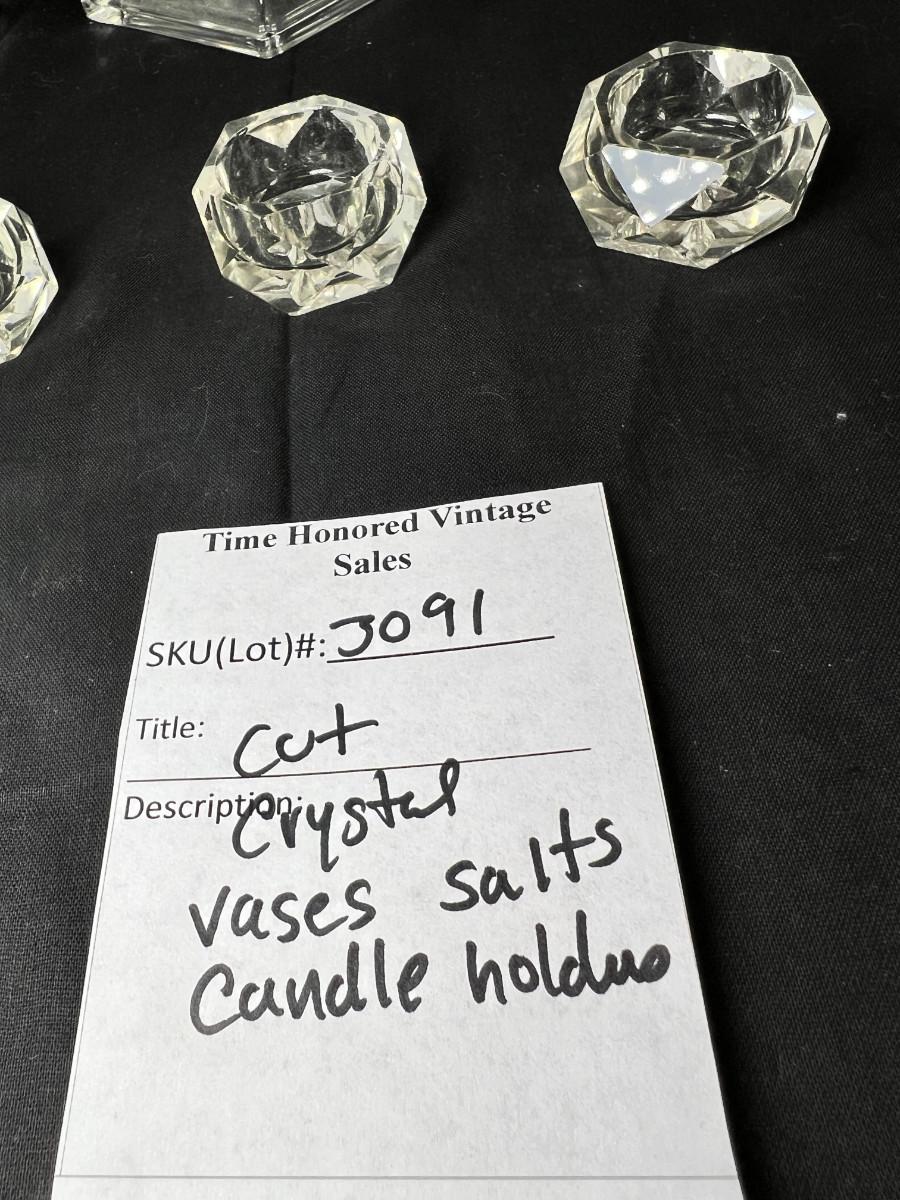 Time Honored Vintage
Sales
SKU(Lot)#: J091
Title: Cut
Description: Crystal
vases salts
Candle holders